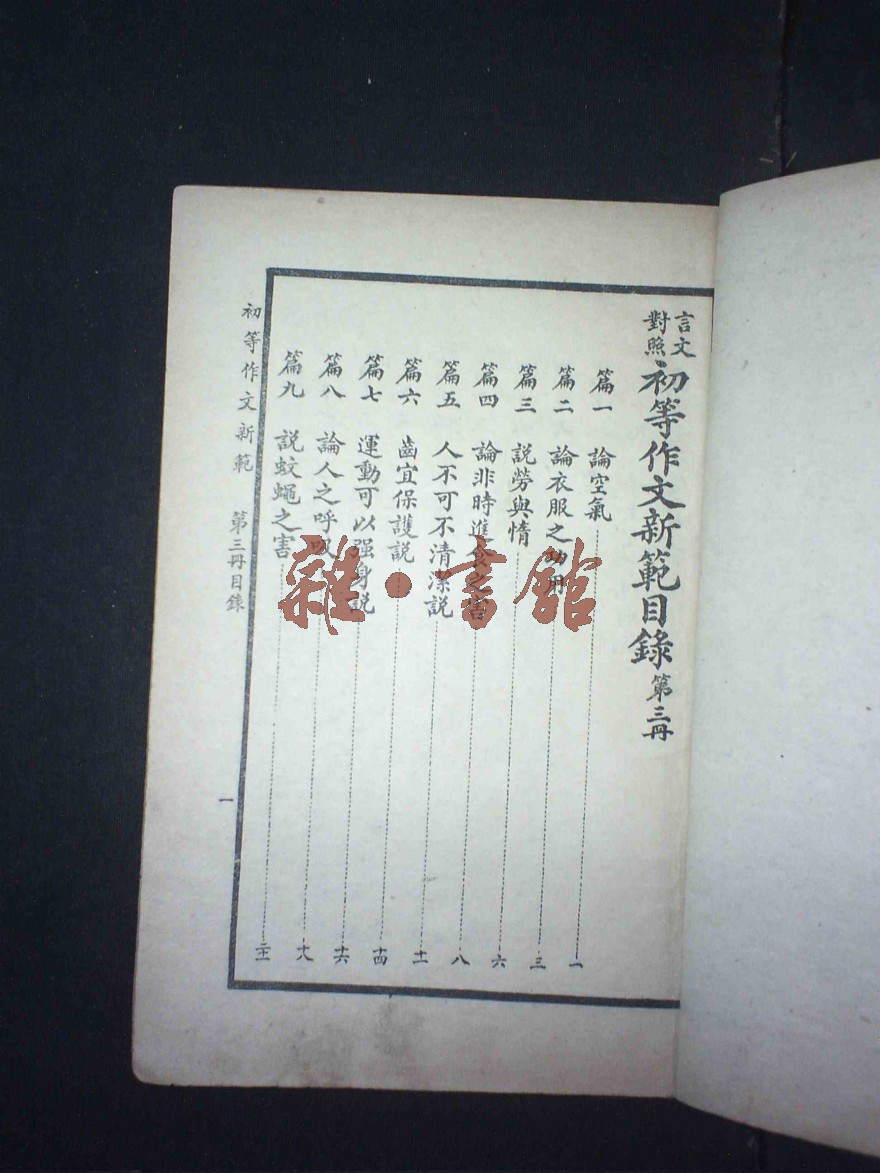 言文對照初等作文新範目錄 第三冊
篇一 論空氣 一
篇二 論衣服之功用 三
篇三 説勞與惰 六
篇四 論非時進食之害 八
篇五 人不可不清潔説 十一
篇六 齒宜保護説 十四
篇七 運動可以强身説 十六
篇八 論人之呼吸 十八
篇九 説蚊蠅之害 二十一
初等作文新範 第三冊目錄 一
雜·書館